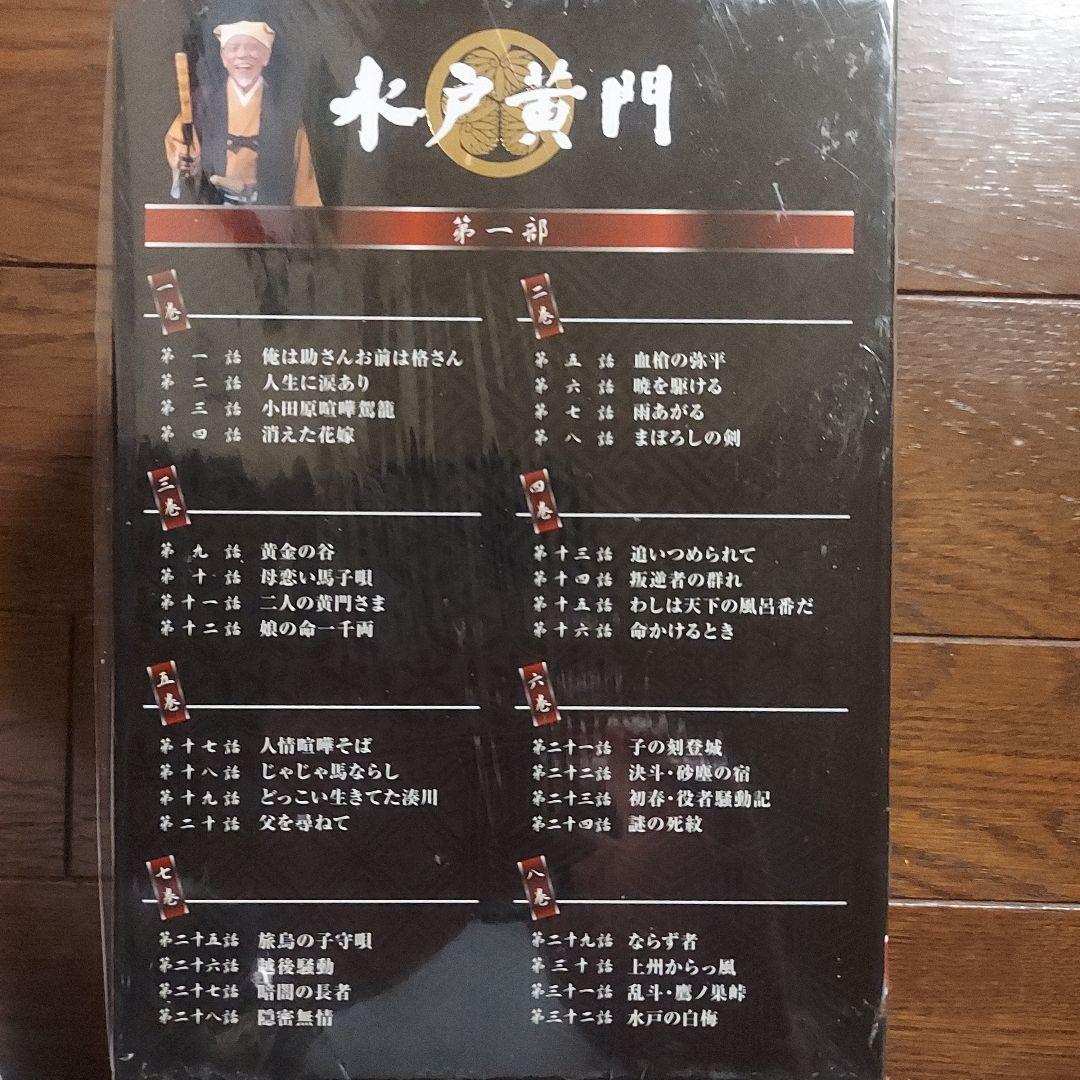 水戸黄門
第一部
一巻
第一話 俺は助さんお前は格さん
第二話 人生に涙あり
第三話 小田原喧嘩駕籠
第四話 消えた花嫁
二巻
第五話 血槍の弥平
第六話 暁を駆ける
第七話 雨あがる
第八話 まぼろしの剣
三巻
第九話 黄金の谷
第十話 母恋い馬子唄
第十一話 二人の黄門さま
第十二話 娘の命一千両
四巻
第十三話 追いつめられて
第十四話 叛逆者の群れ
第十五話 わしは天下の風呂番だ
第十六話 命かけるとき
五巻
第十七話 人情喧嘩そば
第十八話 じゃじゃ馬ならし
第十九話 どっこい生きてた湊川
第二十話 父を尋ねて
六巻
第二十一話 子の刻登城
第二十二話 決斗・砂塵の宿
第二十三話 初春・役者騒動記
第二十四話 謎の死紋
七巻
第二十五話 旅鳥の子守唄
第二十六話 越後騒動
第二十七話 暗闇の長者
第二十八話 隠密無情
八巻
第二十九話 ならず者
第三十話 上州からっ風
第三十一話 乱斗・鷹ノ巣峠
第三十二話 水戸の白梅